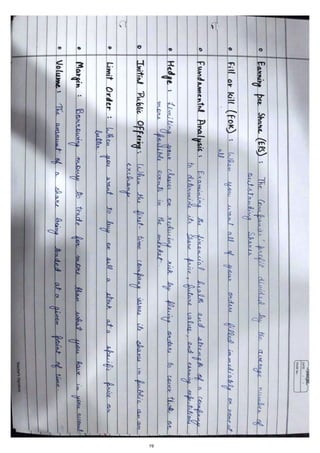 o Earning per Share (EPS) : The Companies' profit divided by the average number of
outstanding Shares
o Fill or Kill (FOK) : When you want all of your orders filled immediately or none at
all
o Fundamental Analysis : Examining the financial health and strength of a company
to determine its base price, future value, and earning
o Hedge : Limiting your losses or reducing risk by placing orders to cover that
more events in the market
o Initial Public Offering : When the first time company issues its shares in public on an
exchange
o Limit Order : When you want to buy or sell a stock at a specific price or
better
o Margin : Borrowing money to trade for more than what you have in your account
o Volume : The amount of a share being traded at a given point of time.
19